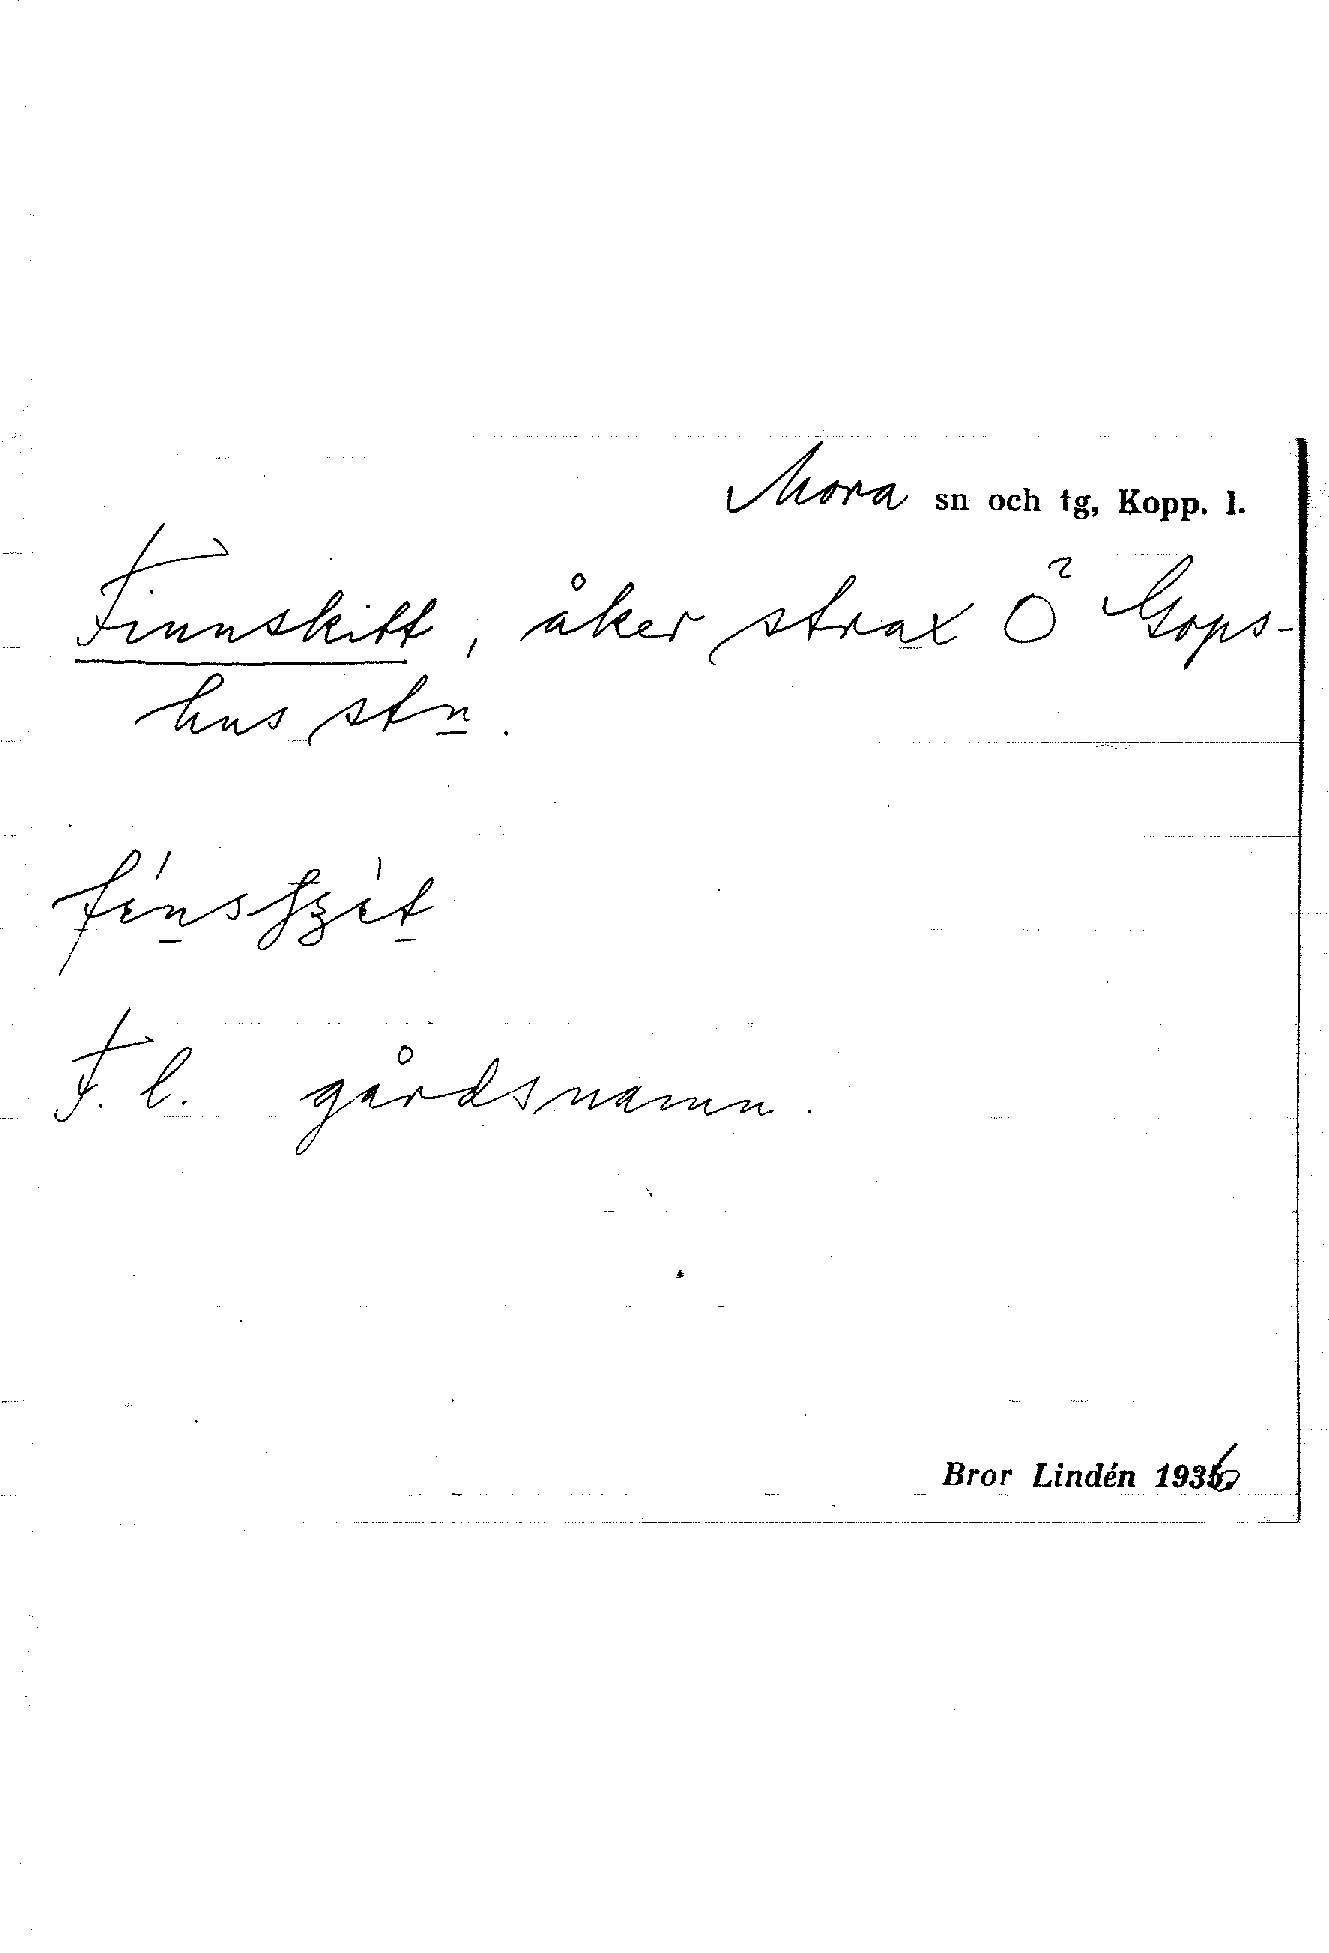 Mora sn och tg, Kopp. l.
Finnskitt, åker strax Ö Gops-
hus stn.
F. l. gårdsnamn.
Bror Lindén 1936